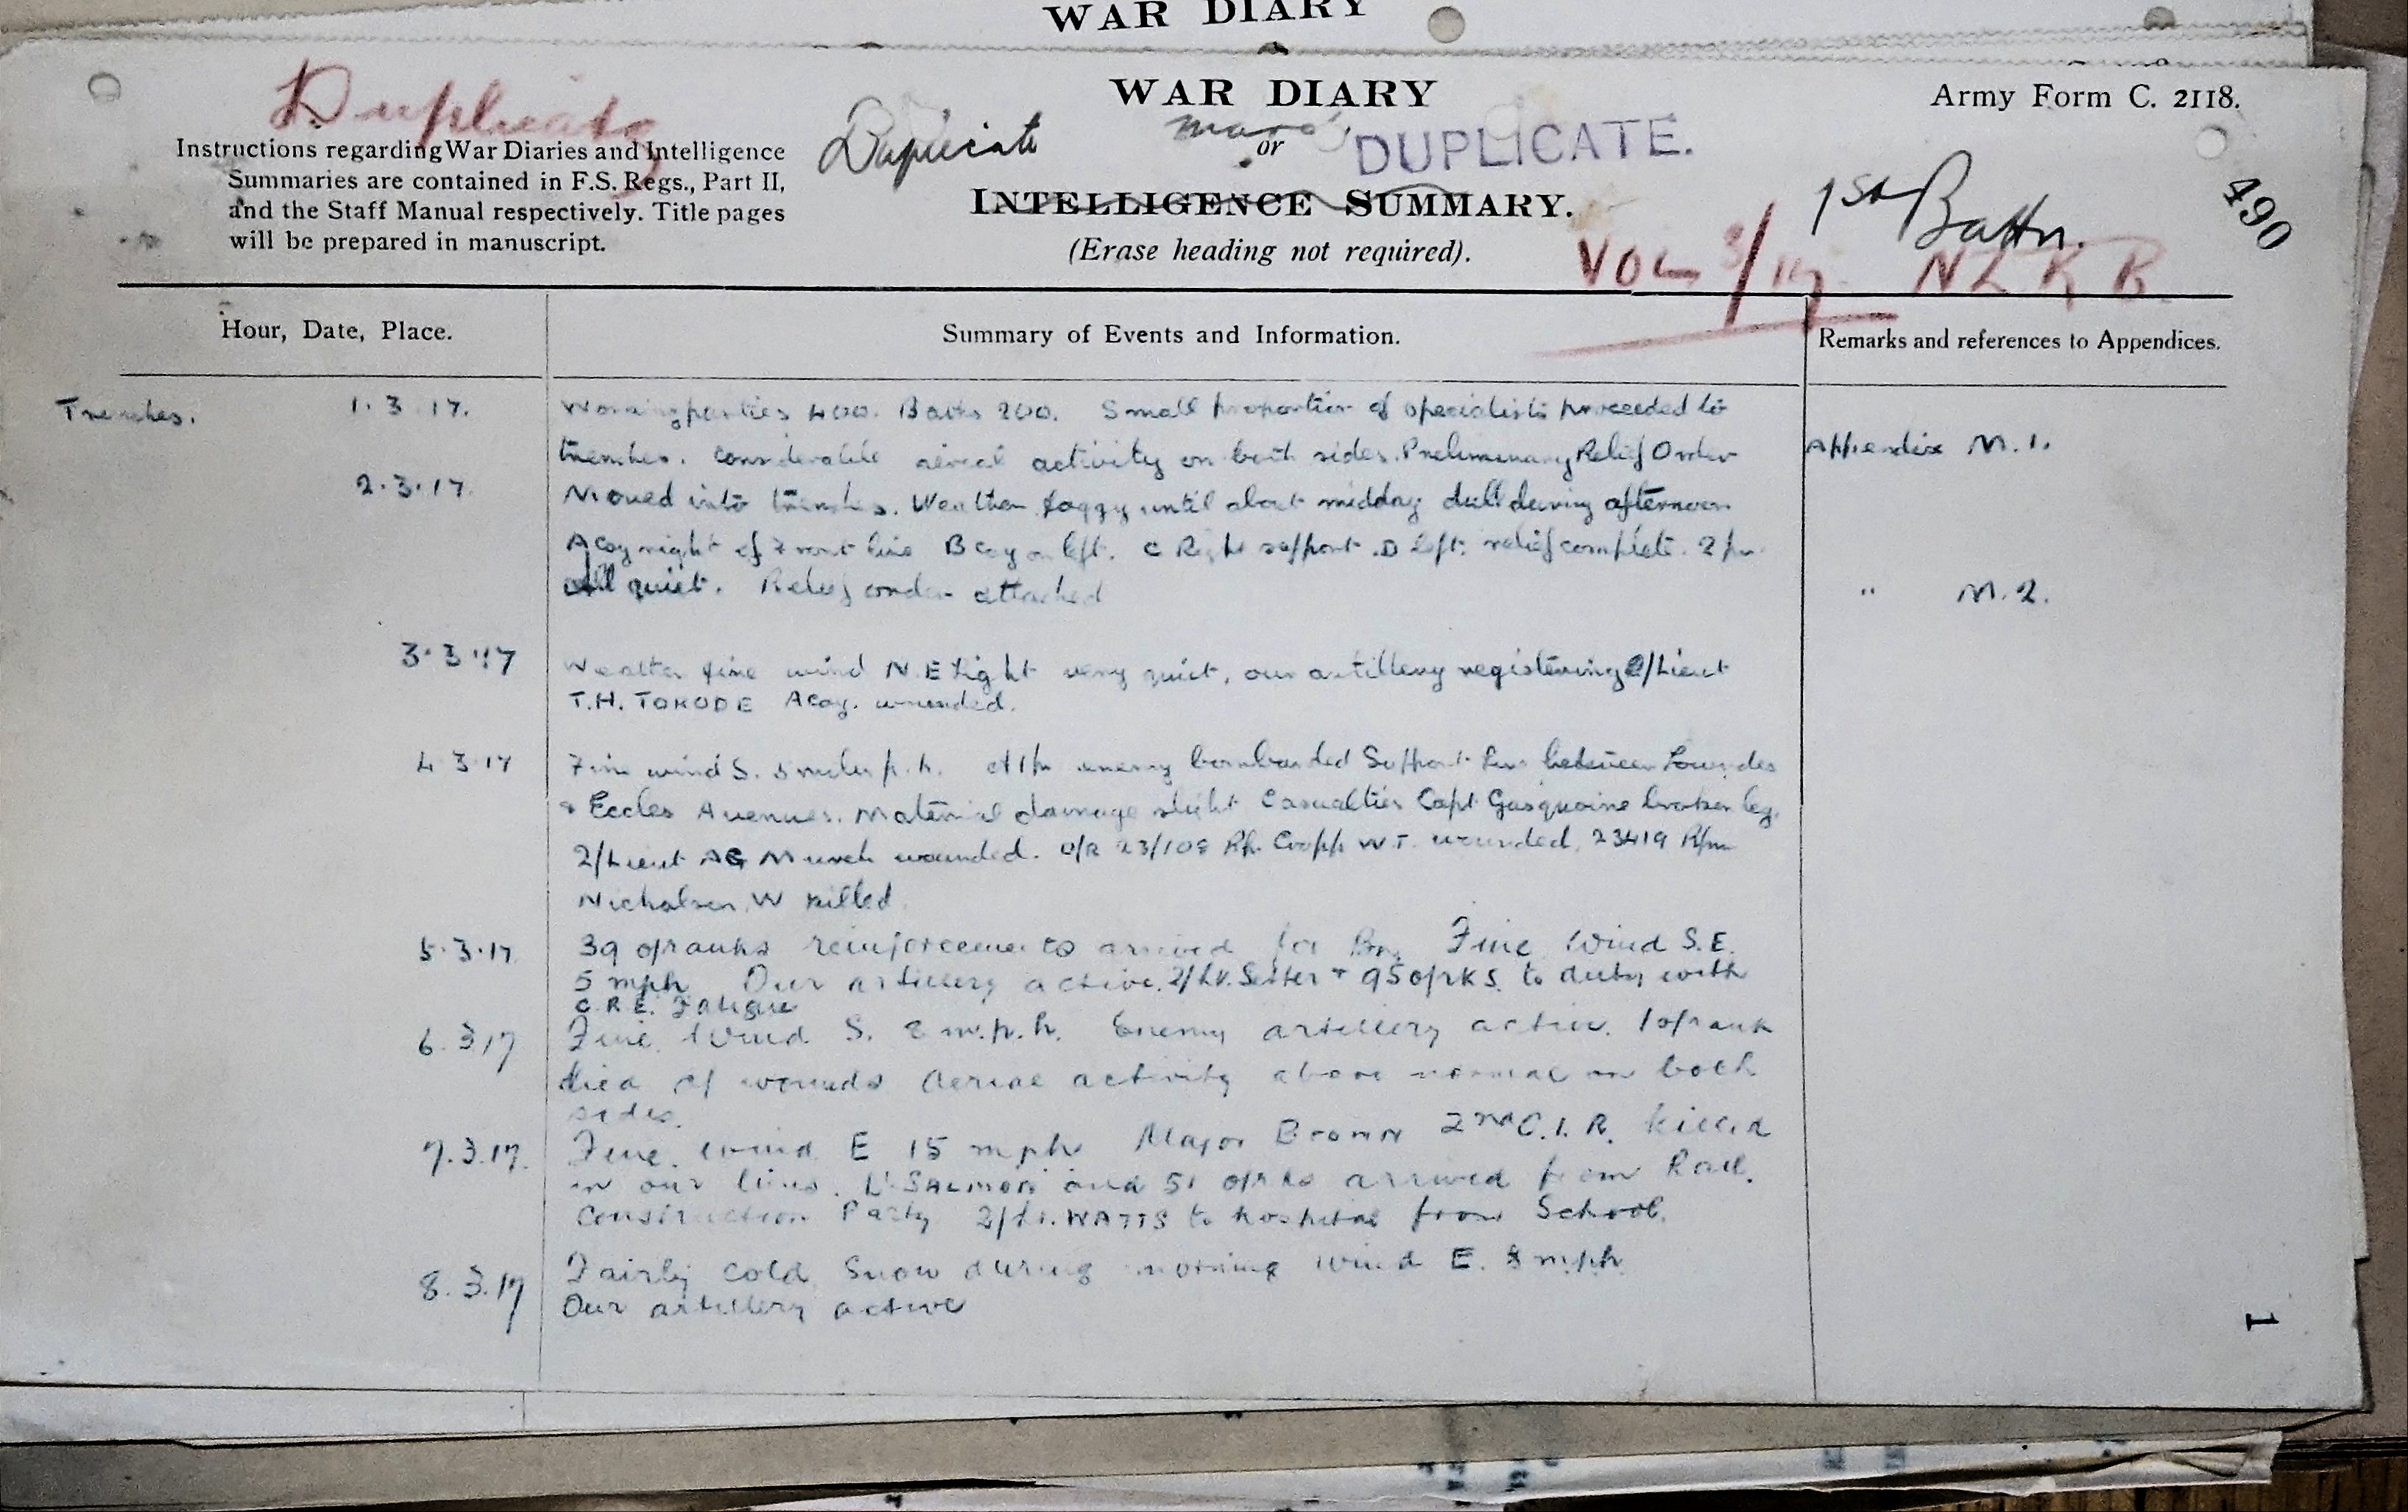 WAR DIARY
WAR DIARY
Army Form C. 2118.
Duplicate
Duplicate
or
DUPLICATE.
Instructions regarding War Diaries and Intelligence
Summaries are contained in F.S. Regs., Part II,
and the Staff Manual respectively. Title pages
will be prepared in manuscript.
INTELLIGENCE SUMMARY.
(Erase heading not required).
1st Battn.
N Z R B
VOL
490
Hour, Date, Place.
Summary of Events and Information.
Remarks and references to Appendices.
Trenches. 1.3.17. Working parties 400. Baths 200. Small proportion of specialists proceeded to
trenches. Considerable aerial activity on both sides. Preliminary Relief Order Appendix M.1.
2.3.17. Moved into trenches. Weather foggy until about midday dull during afternoon
A coy right of Front line B coy on left. C Right support. D left. relief complete. 2 pm.
All quiet. Relief order attached " M.2.
3.3.17 Weather fine wind N.E light very quiet, our artillery registering 2/Lieut
T.H. TORODE A coy. wounded.
4.3.17 Fine wind S. 5 miles p.h. At 1pm enemy bombarded Support line between Lowndes
+ Eccles Avenues. Material damage slight Casualties Capt Gasquoine broken leg.
2/Lieut AG Murch wounded. O/R 23/108 Rfn. Cropp W.T. wounded, 23419 Rfm
Nicholson W killed
5.3.17 39 o/ranks reinforcements arrived for Bn. Fine Wind S.E.
5 mph Our artillery active. 2/Lt. + 95 o/rks. to duty with
C.R.E. Fatigue
6.3.17 Fine. Wind S. 8 m.p.h. Enemy artillery active. 1 o/rank
died of wounds Aerial activity above normal on both
sides.
7.3.17. Fine. Wind E 15 mph Major Brown 2nd C.I.R. killed
in our lines. Lt SALMON and 51 o/rks arrived from Rail.
Construction Party 2/Lt. WATTS to hospital from School.
8.3.17 Fairly cold Snow during morning Wind E. 8 mph
Our artillery active
1